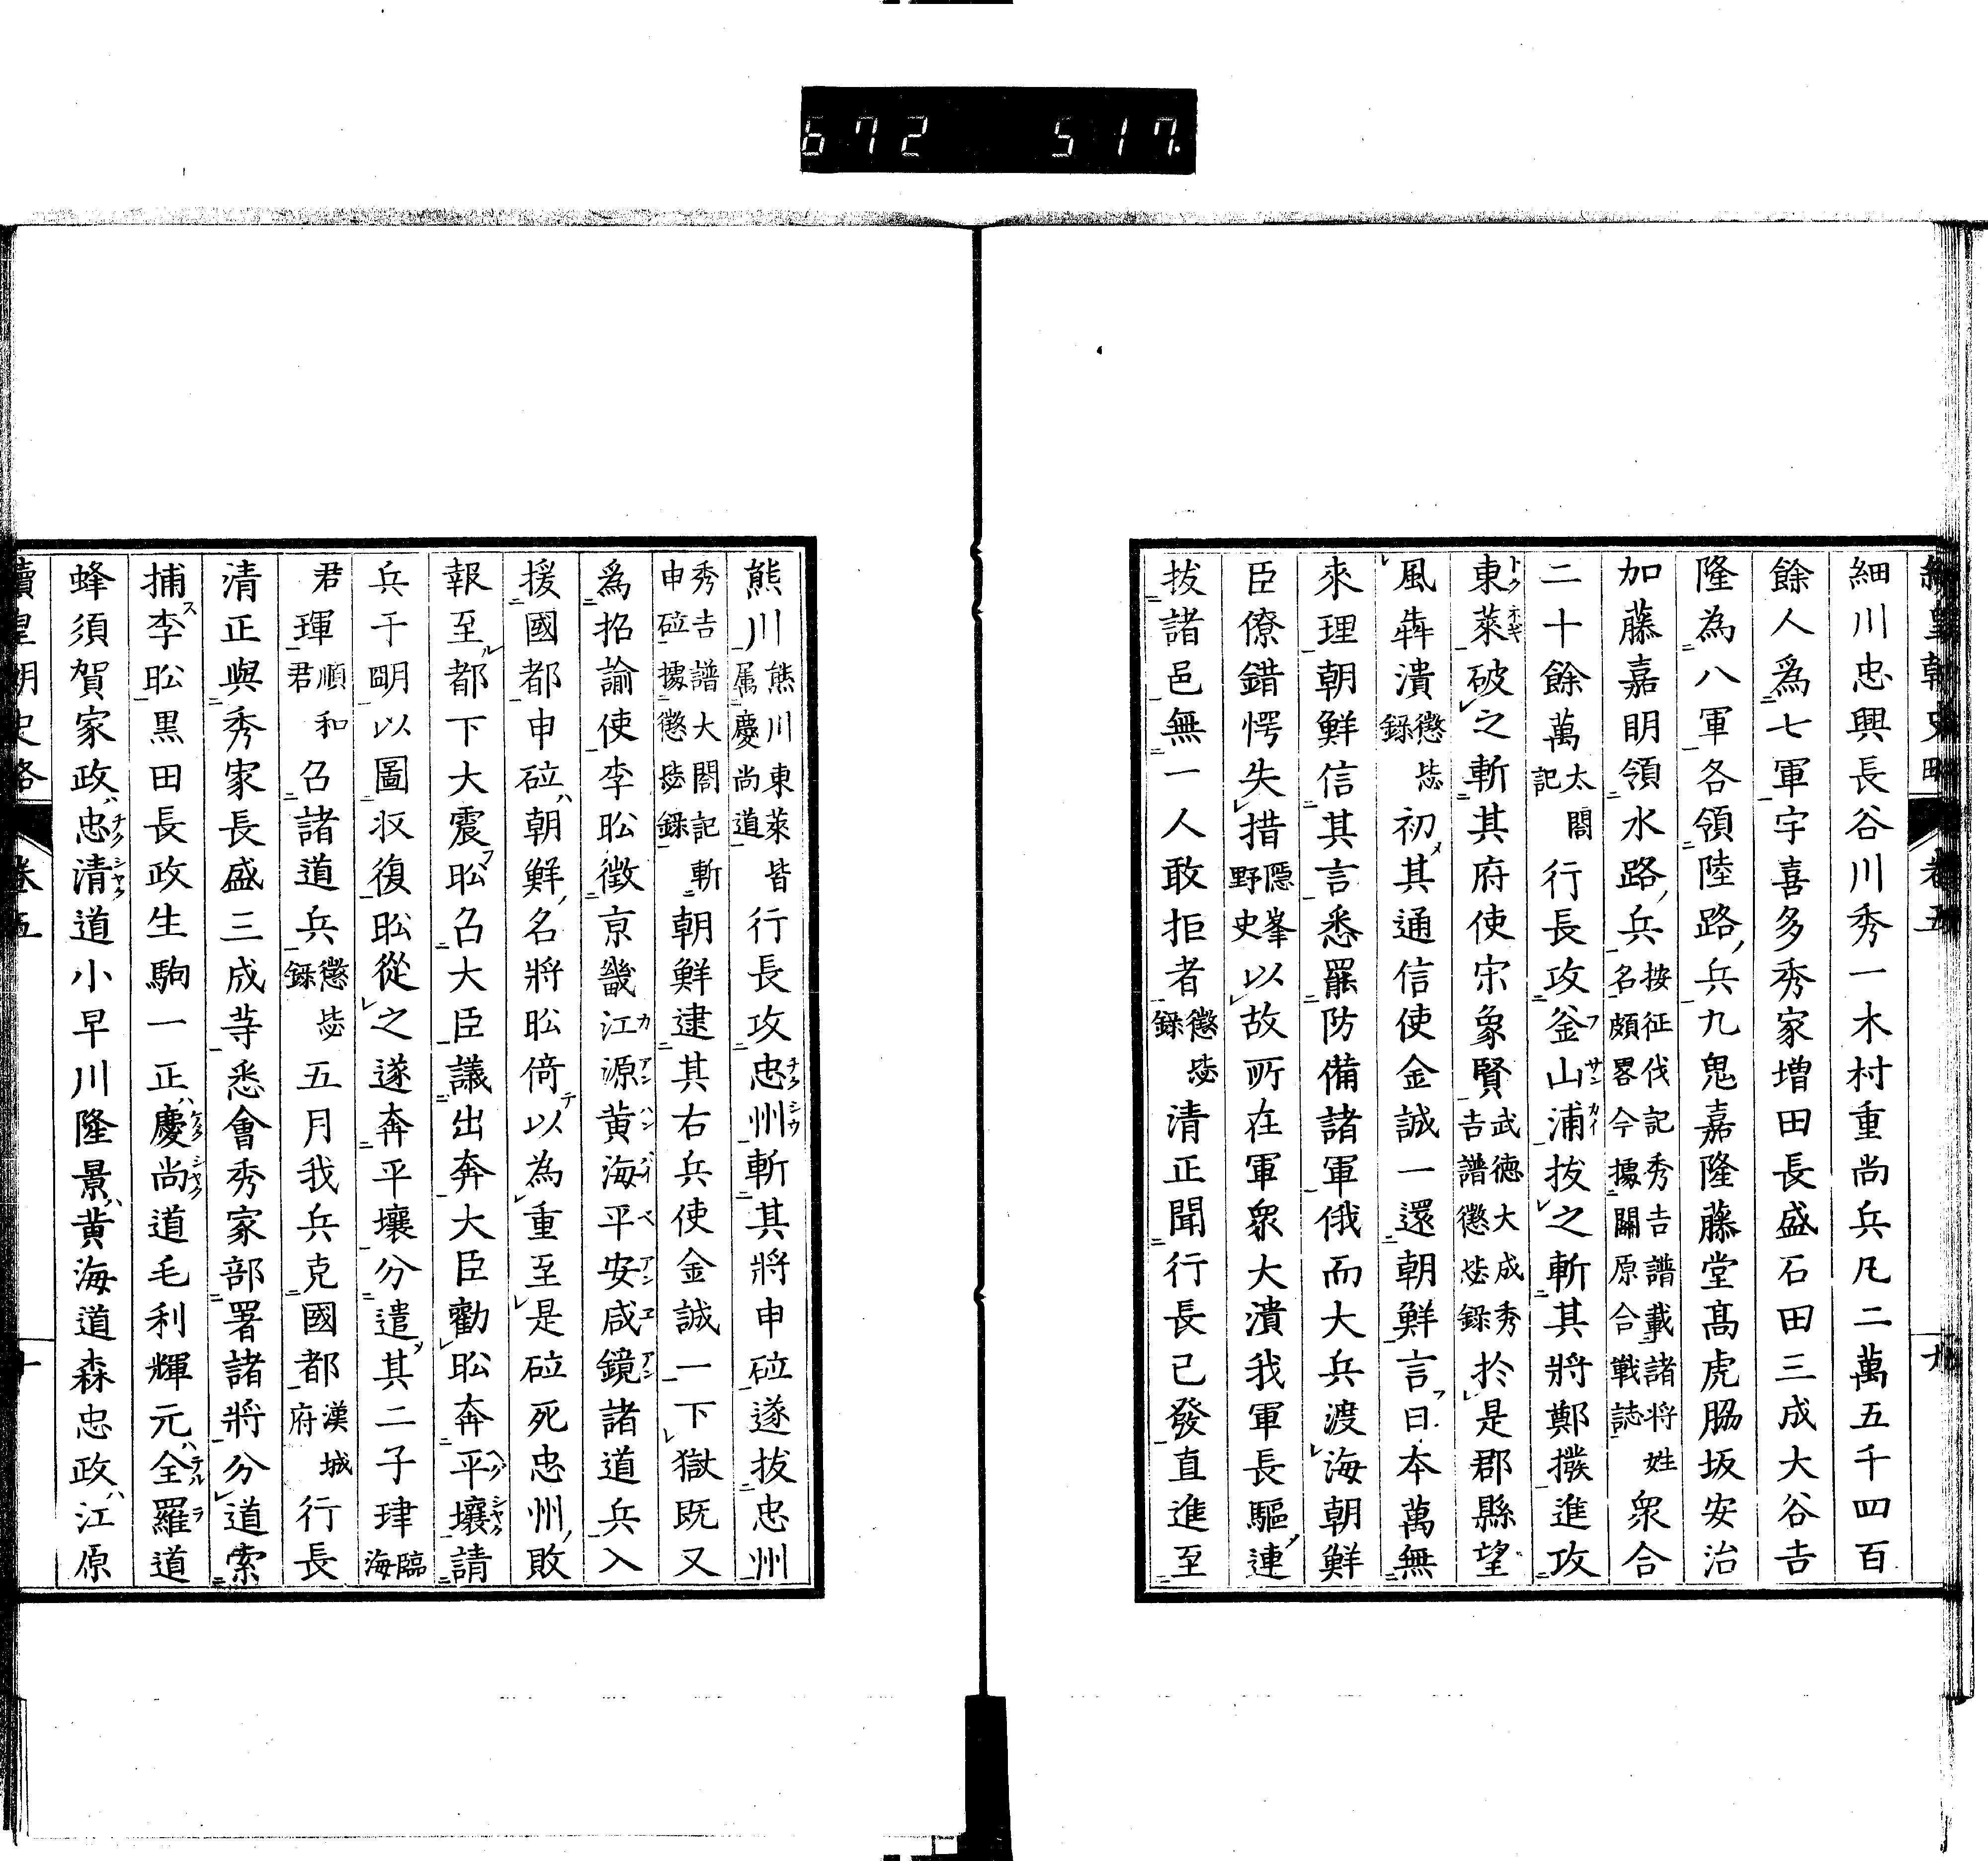 672 517
續皇朝史略 卷五 九
細川忠興長谷川秀一木村重尚兵凡二萬五千四百
餘人爲七軍宇喜多秀家増田長盛石田三成大谷吉
隆為八軍各領陸路兵九鬼嘉隆藤堂髙虎脇坂安治
加藤嘉明領水路兵按征伐記秀吉譜載諸将姓名頗畧今據關原合戰誌衆合
二十餘萬太閤記行長攻釜山浦拔之斬其將鄭撥進攻
東萊破之斬其府使宋象賢武徳大成秀吉譜懲毖録於是郡縣望
風犇潰懲毖録初其通信使金誠一還朝鮮言日本萬無
來理朝鮮信其言悉罷防備諸軍俄而大兵渡海朝鮮
臣僚錯愕失措隱峯野史以故所在軍衆大潰我軍長驅連
拔諸邑無一人敢拒者懲毖録清正聞行長已發直進至
熊川熊川東萊皆属慶尚道行長攻忠州斬其將申砬遂拔忠州
秀吉譜大閤記斬申砬據懲毖録朝鮮逮其右兵使金誠一下獄既又
爲招諭使李昖徵京畿江源黄海平安咸鏡諸道兵入
援國都申砬朝鮮名將昖倚以為重至是砬死忠州敗
報至都下大震昖召大臣議出奔大臣勸昖奔平壤請
兵于明以圖收復昖從之遂奔平壤分遣其二子珒臨海
君琿順和君召諸道兵懲毖録五月我兵克國都漢城府行長
清正與秀家長盛三成等悉會秀家部署諸將分道索
捕李昖黒田長政生駒一正慶尚道毛利輝元全羅道
蜂須賀家政忠清道小早川隆景黄海道森忠政江原
續皇朝史略 卷五 十